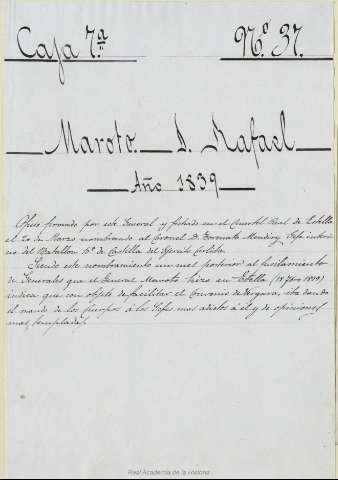 Caja 7.ª Nº 37.
Maroto. D. Rafael
Año 1839
Oficio firmado por este General y fechado en el Cuartel Real de Estella
el 20 de Marzo nombrando al Coronel D. Torcuato Mendiry, Gefe interi-
no del Batallon 1º de Castilla del Ejercito Carlista.
Siendo este nombramiento un mes posterior al fusilamiento
de Generales que el General Maroto hizo en Estella (18 Febro 1839)
indica que con objeto de facilitar el Convenio de Vergara, iba dando
el mando de los cuerpos a los Gefes mas adictos á él y de opiniones
mas templadas.
Real Academia de la Historia